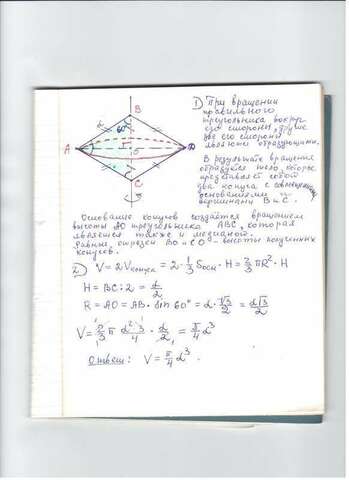 B
α
60°
A
O
D
C
1) При вращении
правильного
треугольника вокруг
его стороны, другие
две его стороны
являются образующими.
В результате вращения
образуется тело, которое
представляет собой
два конуса с совмещенными
основаниями и
вершинами B и C.
Основание конусов создаётся вращением
высоты AO треугольника ABC, которая
является также и медианой.
Равные отрезки BO и CO - высоты полученных
конусов.
2) V = 2Vконуса = 2 · 1/3 Sосн · H = 2/3 πR² · H
H = BC : 2 = α/2
R = AO = AB · sin 60° = α · √3/2 = α√3/2
V = 2/3 π α²·3/4 · α/2 = π/4 α³
Ответ: V = π/4 α³.